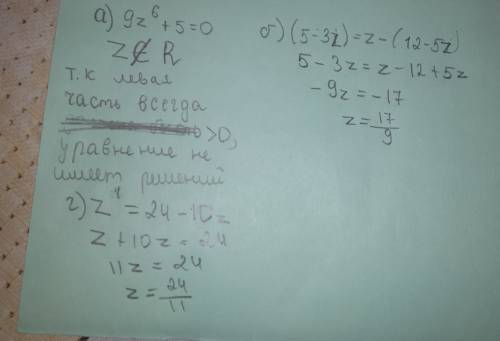 а) 9z⁶ + 5 = 0
Z ∉ R
т.к левая
часть всегда
>0,
уравнение не
имеет решений
г) z¹ = 24 - 10z
z + 10z = 24
11z = 24
z = 24/11
б) (5-3z) = z - (12-5z)
5 - 3z = z - 12 + 5z
-9z = -17
z = 17/9